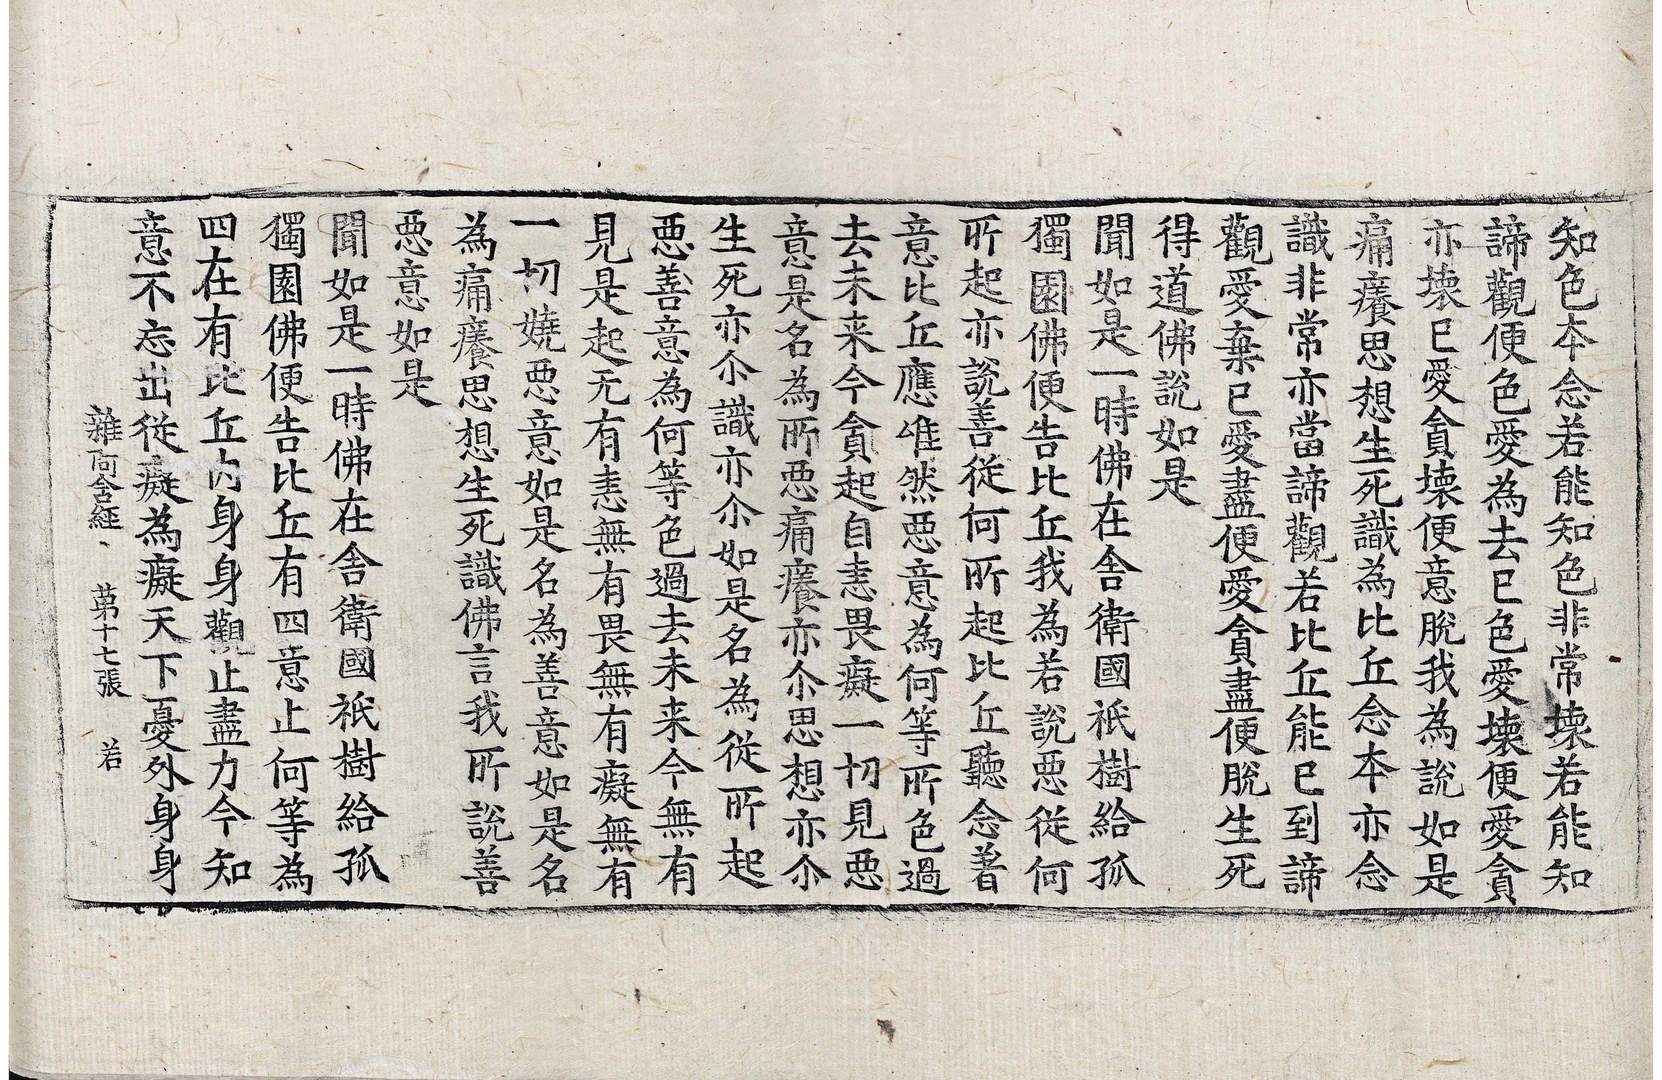 知色本念若能知色非常壊若能知
諦觀便色愛為去已色愛壊便愛貪
亦壊已愛貪壊便意脫我為說如是
痛癢思想生死識為比丘念本亦念
識非常亦當諦觀若比丘能已到諦
觀愛棄已愛盡便愛貪盡便脫生死
得道佛說如是
聞如是一時佛在舎衛國祇樹給孤
獨園佛便告比丘我為若說悪従何
所起亦說善従何所起比丘聽念著
意比丘應唯然悪意為何等所色過
去未来今貪起自恚畏癡一切見悪
意是名為所悪痛癢亦尒思想亦尒
生死亦尒識亦尒如是名為従所起
悪善意為何等色過去未来今無有
見是起无有恚無有畏無有癡無有
一切嬈悪意如是名為善意如是名
為痛癢思想生死識佛言我所說善
悪意如是
聞如是一時佛在舎衛國祇樹給孤
獨園佛便告比丘有四意止何等為
四在有比丘内身身觀止盡力今知
意不忘出従癡為癡天下憂外身身
雜阿含経 苐十七張 若